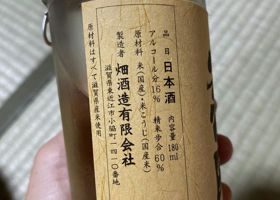 品目 日本酒 内容量180ml
アルコール分16% 精米歩合60%
原材料 米(国産)・米こうじ(国産米)
製造者 畑酒造有限会社
滋賀県東近江市小脇町一四一〇番地
原材料はすべて滋賀県産米使用